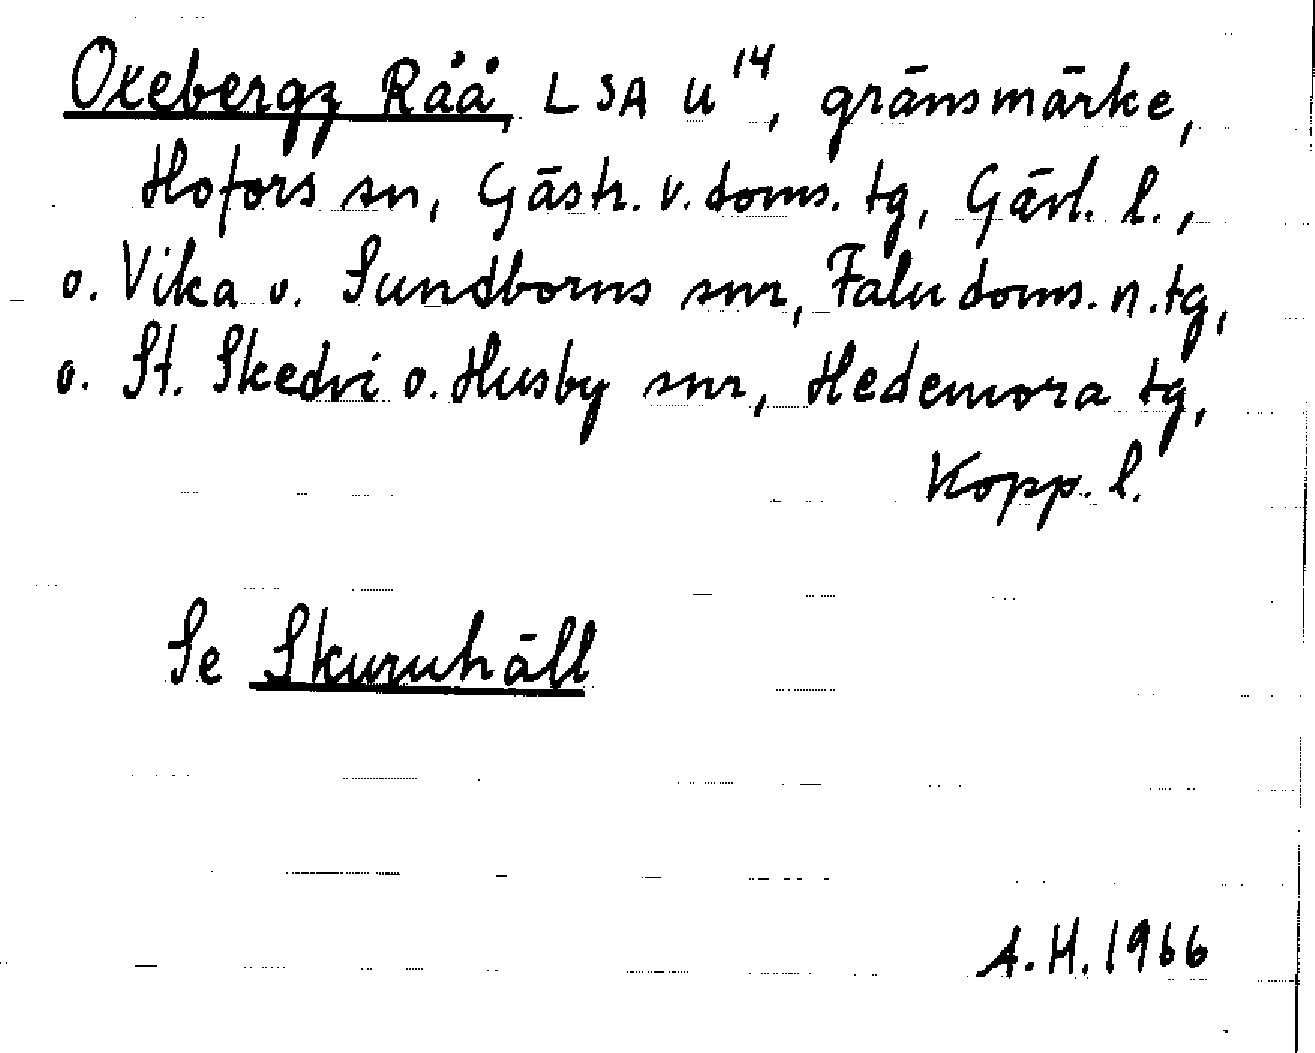 Oxebergz Råå, LSA U14, gränsmärke,
Hofors sn, Gästr. v. doms. tg, Gävl. l.,
o. Vika o. Sundborns snr, Falu doms. n. tg,
o. St. Skedvi o. Husby snr, Hedemora tg,
Kopp. l.
Se Skuruhäll
A.H. 1966